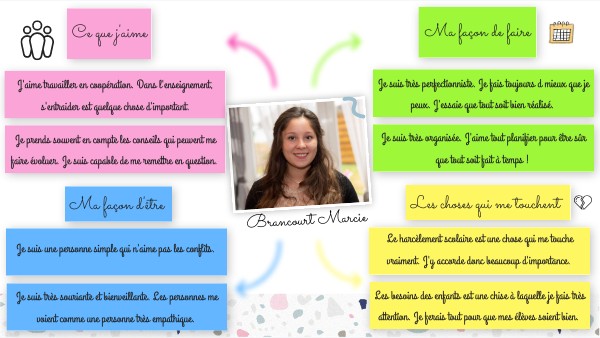 Ce que j'aime
J'aime travailler en coopération. Dans l'enseignement,
s'entraider est quelque chose d'important.
Je prends souvent en compte les conseils qui peuvent me
faire évoluer. Je suis capable de me remettre en question.
Ma façon de faire
Je suis très perfectionniste. Je fais toujours d mieux que je
peux. J'essaie que tout soit bien réalisé.
Je suis très organisée. J'aime tout planifier pour être sûr
que tout soit fait à temps !
Brancourt Marcie
Ma façon d'être
Je suis une personne simple qui n'aime pas les conflits.
Je suis très souriante et bienveillante. Les personnes me
voient comme une personne très empathique.
Les choses qui me touchent
Le harcèlement scolaire est une chose qui me touche
vraiment. J'y accorde donc beaucoup d'importance.
Les besoins des enfants est une chise à laquelle je fais très
attention. Je ferais tout pour que mes élèves soient bien.